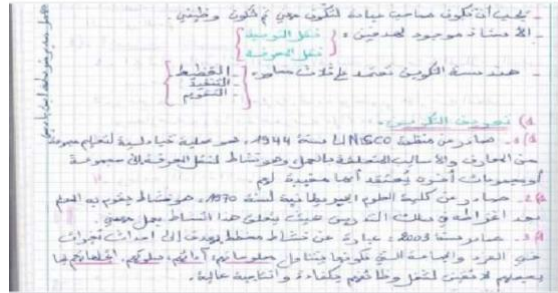 - يجب أن تكون صاحب مبادة لتكون مهني ثم تكون وظيفي.
- الأستاذ موجود لهدفين:
نقل التوحيد
نقل المعرفة
- هندسة التكوين تعتمد على ثلاث محاور:
- التخطيط
- التنفيذ
- التقويم
1) تعريف التكوين:
صادر من منظمة UNisco سنة 1944، هو عملية تبادلية لتعليم مجموعة
من المعارف والأساليب المتعلقة بالعمل وهو نشاط لنقل المعرفة إلى مجموعة
أو مجموعات أخرى يعتقد أنها مفيدة لهم.
صادر من كلية العلوم البيداغوجية لسنة 1970، هو نشاط يقوم به المعلم
بعد انخراطه في سلك التدريس حيث يتعلق هذا النشاط بعمل مهني.
صادر سنة 2003، عبارة عن نشاط مخطط يهدف إلى احداث تغيرات
في الفرد والجماعة التي تكونها يتناول معلوماتهم، أدائهم، سلوكهم، اتجاهاتهم بما
يجعلهم لائقين لشغل وظائفهم بكفاءة وانتاجية عالية.